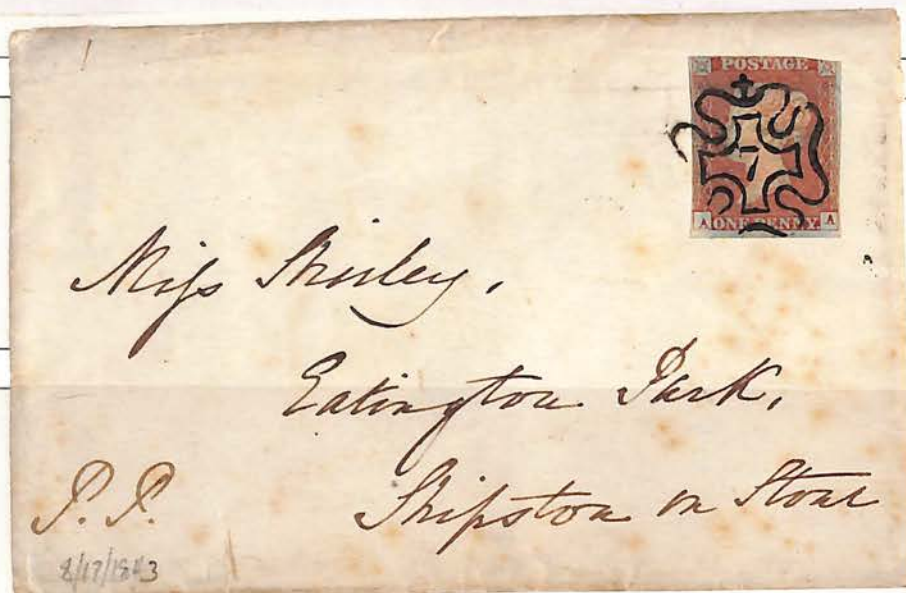 POSTAGE
7
A ONE PENNY A
Miss Shirley,
Eatington Park,
Shipston on Stour
P. P.
8/17/1843